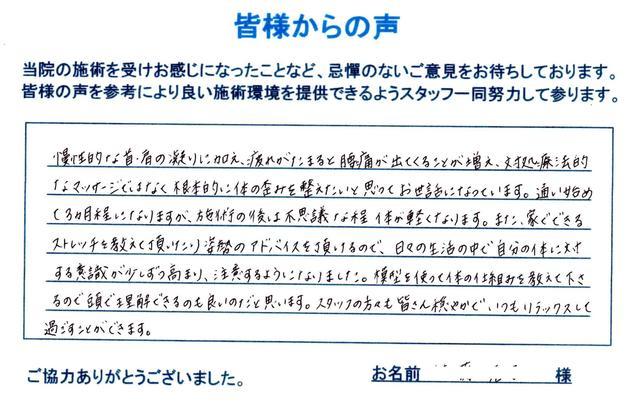 皆様からの声
当院の施術を受けお感じになったことなど、忌憚のないご意見をお待ちしております。
皆様の声を参考により良い施術環境を提供できるようスタッフ一同努力して参ります。
慢性的な首・肩の凝りに加え、疲れがたまると腰痛が出てくることが増え、対処療法的
なマッサージではなく根本的に体の歪みを整えたいと思ってお世話になっています。通い始め
て3カ月程になりますが、施術の後は不思議な程体が軽くなります。また、家でできる
ストレッチを教えて頂いたり姿勢のアドバイスを頂けるので、日々の生活の中で自分の体に対
する意識が少しずつ高まり、注意するようになりました。模型を使って体の仕組みを教えて下さ
るので頭で理解できるのも良いのだと思います。スタッフの方々も皆さん穏やかでいつもリラックスして
過ごすことができます。
ご協力ありがとうございました。
お名前 様